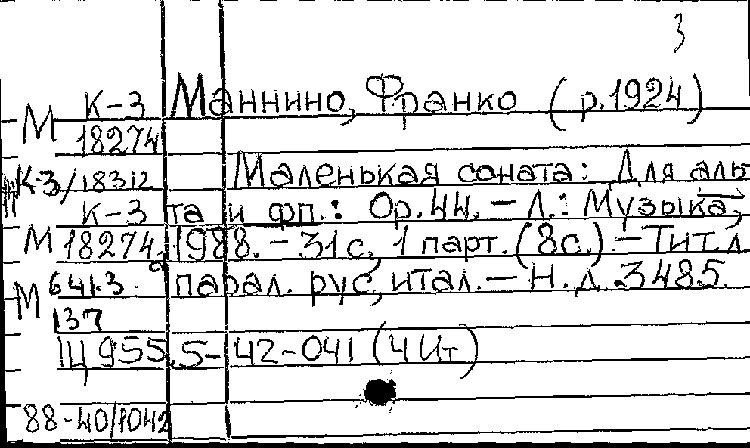 3
М К-3 Маннино, Франко (р.1924)
18274
К-3/18312 Маленькая соната: Для аль
К-3 та и фп.: Ор.44. – Л.: Музыка,
М 18274 1988. – 31 с., 1 парт. (8с.) – Тит.л.
парал. рус., итал. – Н.д. 3485.
М 641.3
137
Щ 955.5-42-041 (4 Ит)
88-40/1042